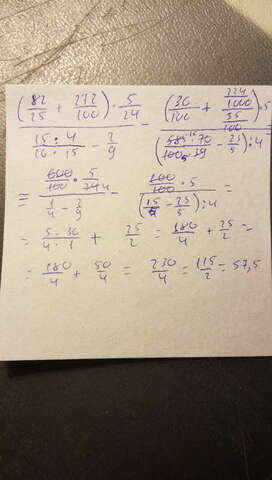 (82/25 + 272/100) · 5/24 / (15 : 4/16 · 15 - 2/9) - (30/100 + 224/1000 / 35/100) · 5 / (585 · 70/100 · 19 - 23/5) : 4
= 600/100 · 5/24 / (1/4 - 2/9) - 100/100 · 5 / (15/ - 23/5) : 4 =
= 5 · 36/4 · 1 + 25/2 = 180/4 + 25/2 =
= 180/4 + 50/4 = 230/4 = 115/2 = 57,5